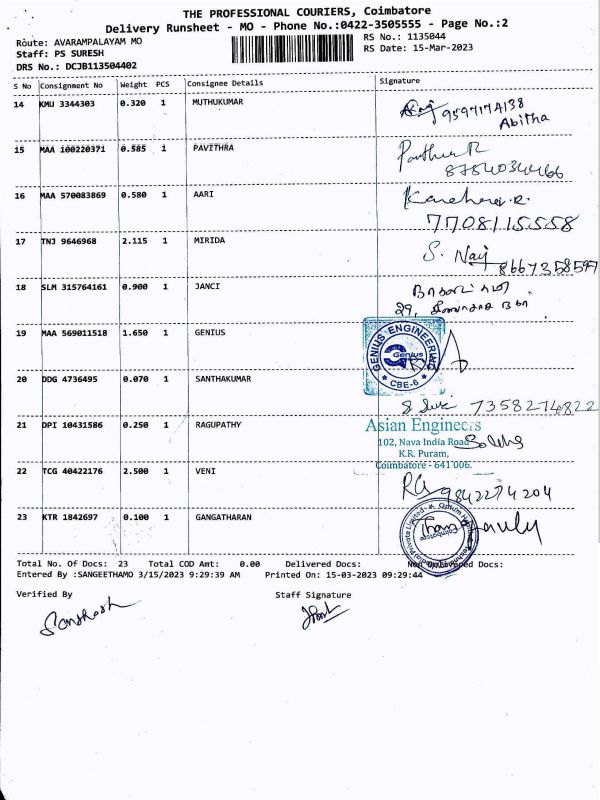 THE PROFESSIONAL COURIERS, Coimbatore
Delivery Runsheet - MO - Phone No.:0422-3505555 - Page No.:2
Route: AVARAMPALAYAM MO
RS No.: 1135044
Staff: PS SURESH
RS Date: 15-Mar-2023
DRS No.: DCJB113504402
S No Consignment No Weight PCS Consignee Details Signature
14 KMU 3344303 0.320 1 MUTHUKUMAR
9597174138
Abitha
15 MAA 100220371 0.585 1 PAVITHRA
Pavithra R
8754034466
16 MAA 570083869 0.580 1 AARI
7708115558
17 TNJ 9646968 2.115 1 MIRIDA
S.
8667358597
18 SLM 315764161 0.900 1 JANCI
29,
19 MAA 569011518 1.650 1 GENIUS
GENIUS ENGINEERING
Genius
★ CBE-6 ★
20 DDG 4736495 0.070 1 SANTHAKUMAR
7358274822
21 DPI 10431586 0.250 1 RAGUPATHY
Asian Engineers
102, Nava India Road
K.R. Puram,
Coimbatore - 641 006.
22 TCG 40422176 2.500 1 VENI
9842274204
23 KTR 1842697 0.100 1 GANGATHARAN
Private Limited
Coimbatore
Total No. Of Docs: 23 Total COD Amt: 0.00 Delivered Docs: Non Delivered Docs:
Entered By :SANGEETHAMO 3/15/2023 9:29:39 AM Printed On: 15-03-2023 09:29:44
Verified By Staff Signature